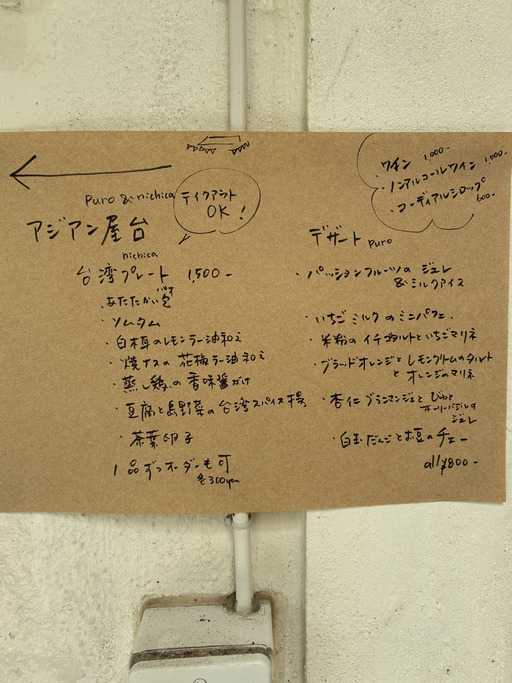 puro & nichica
テイクアウト
OK!
アジアン屋台
nichica
台湾プレート 1,500-
・あたたかい包
・ソムタム
・白木耳のレモンラー油和え
・焼ナスの花椒ラー油和え
・蒸し鶏の香味醤がけ
・豆腐と島野菜の台湾スパイス揚
・茶葉卵子
1品ずつオーダーも可
各300yen
・ワイン 1,000-
・ノンアルコールワイン 1,000-
・コーディアルシロップ
600-
デザート puro
・パッションフルーツのジュレ
&ミルクアイス
・いちごミルクのミニパフェ.
・米粉のイチゴタルトといちごマリネ
・ブラッドオレンジとレモンクリームのタルト
とオレンジのマリネ
・杏仁ブランマンジェとびわと
ホーリーバジルの
ジュレ
・白玉だんごとお豆のチェー
all ¥800-